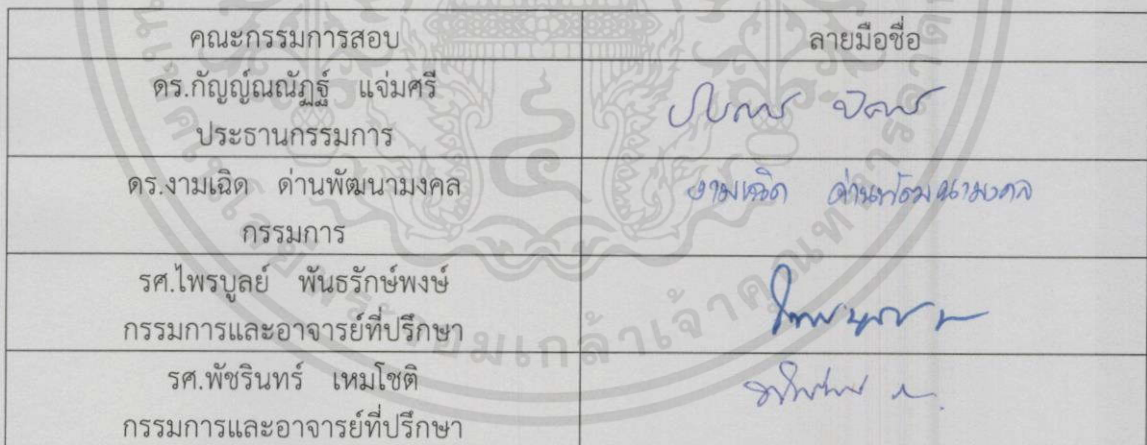 คณะกรรมการสอบ ลายมือชื่อ
ดร.กัญญ์ณณัฏฐ์ แจ่มศรี
ประธานกรรมการ
ดร.งามเฉิด ด่านพัฒนามงคล งามเฉิด ด่านพัฒนามงคล
กรรมการ
รศ.ไพรบูลย์ พันธรักษ์พงษ์
กรรมการและอาจารย์ที่ปรึกษา
รศ.พัชรินทร์ เหมโชติ
กรรมการและอาจารย์ที่ปรึกษา